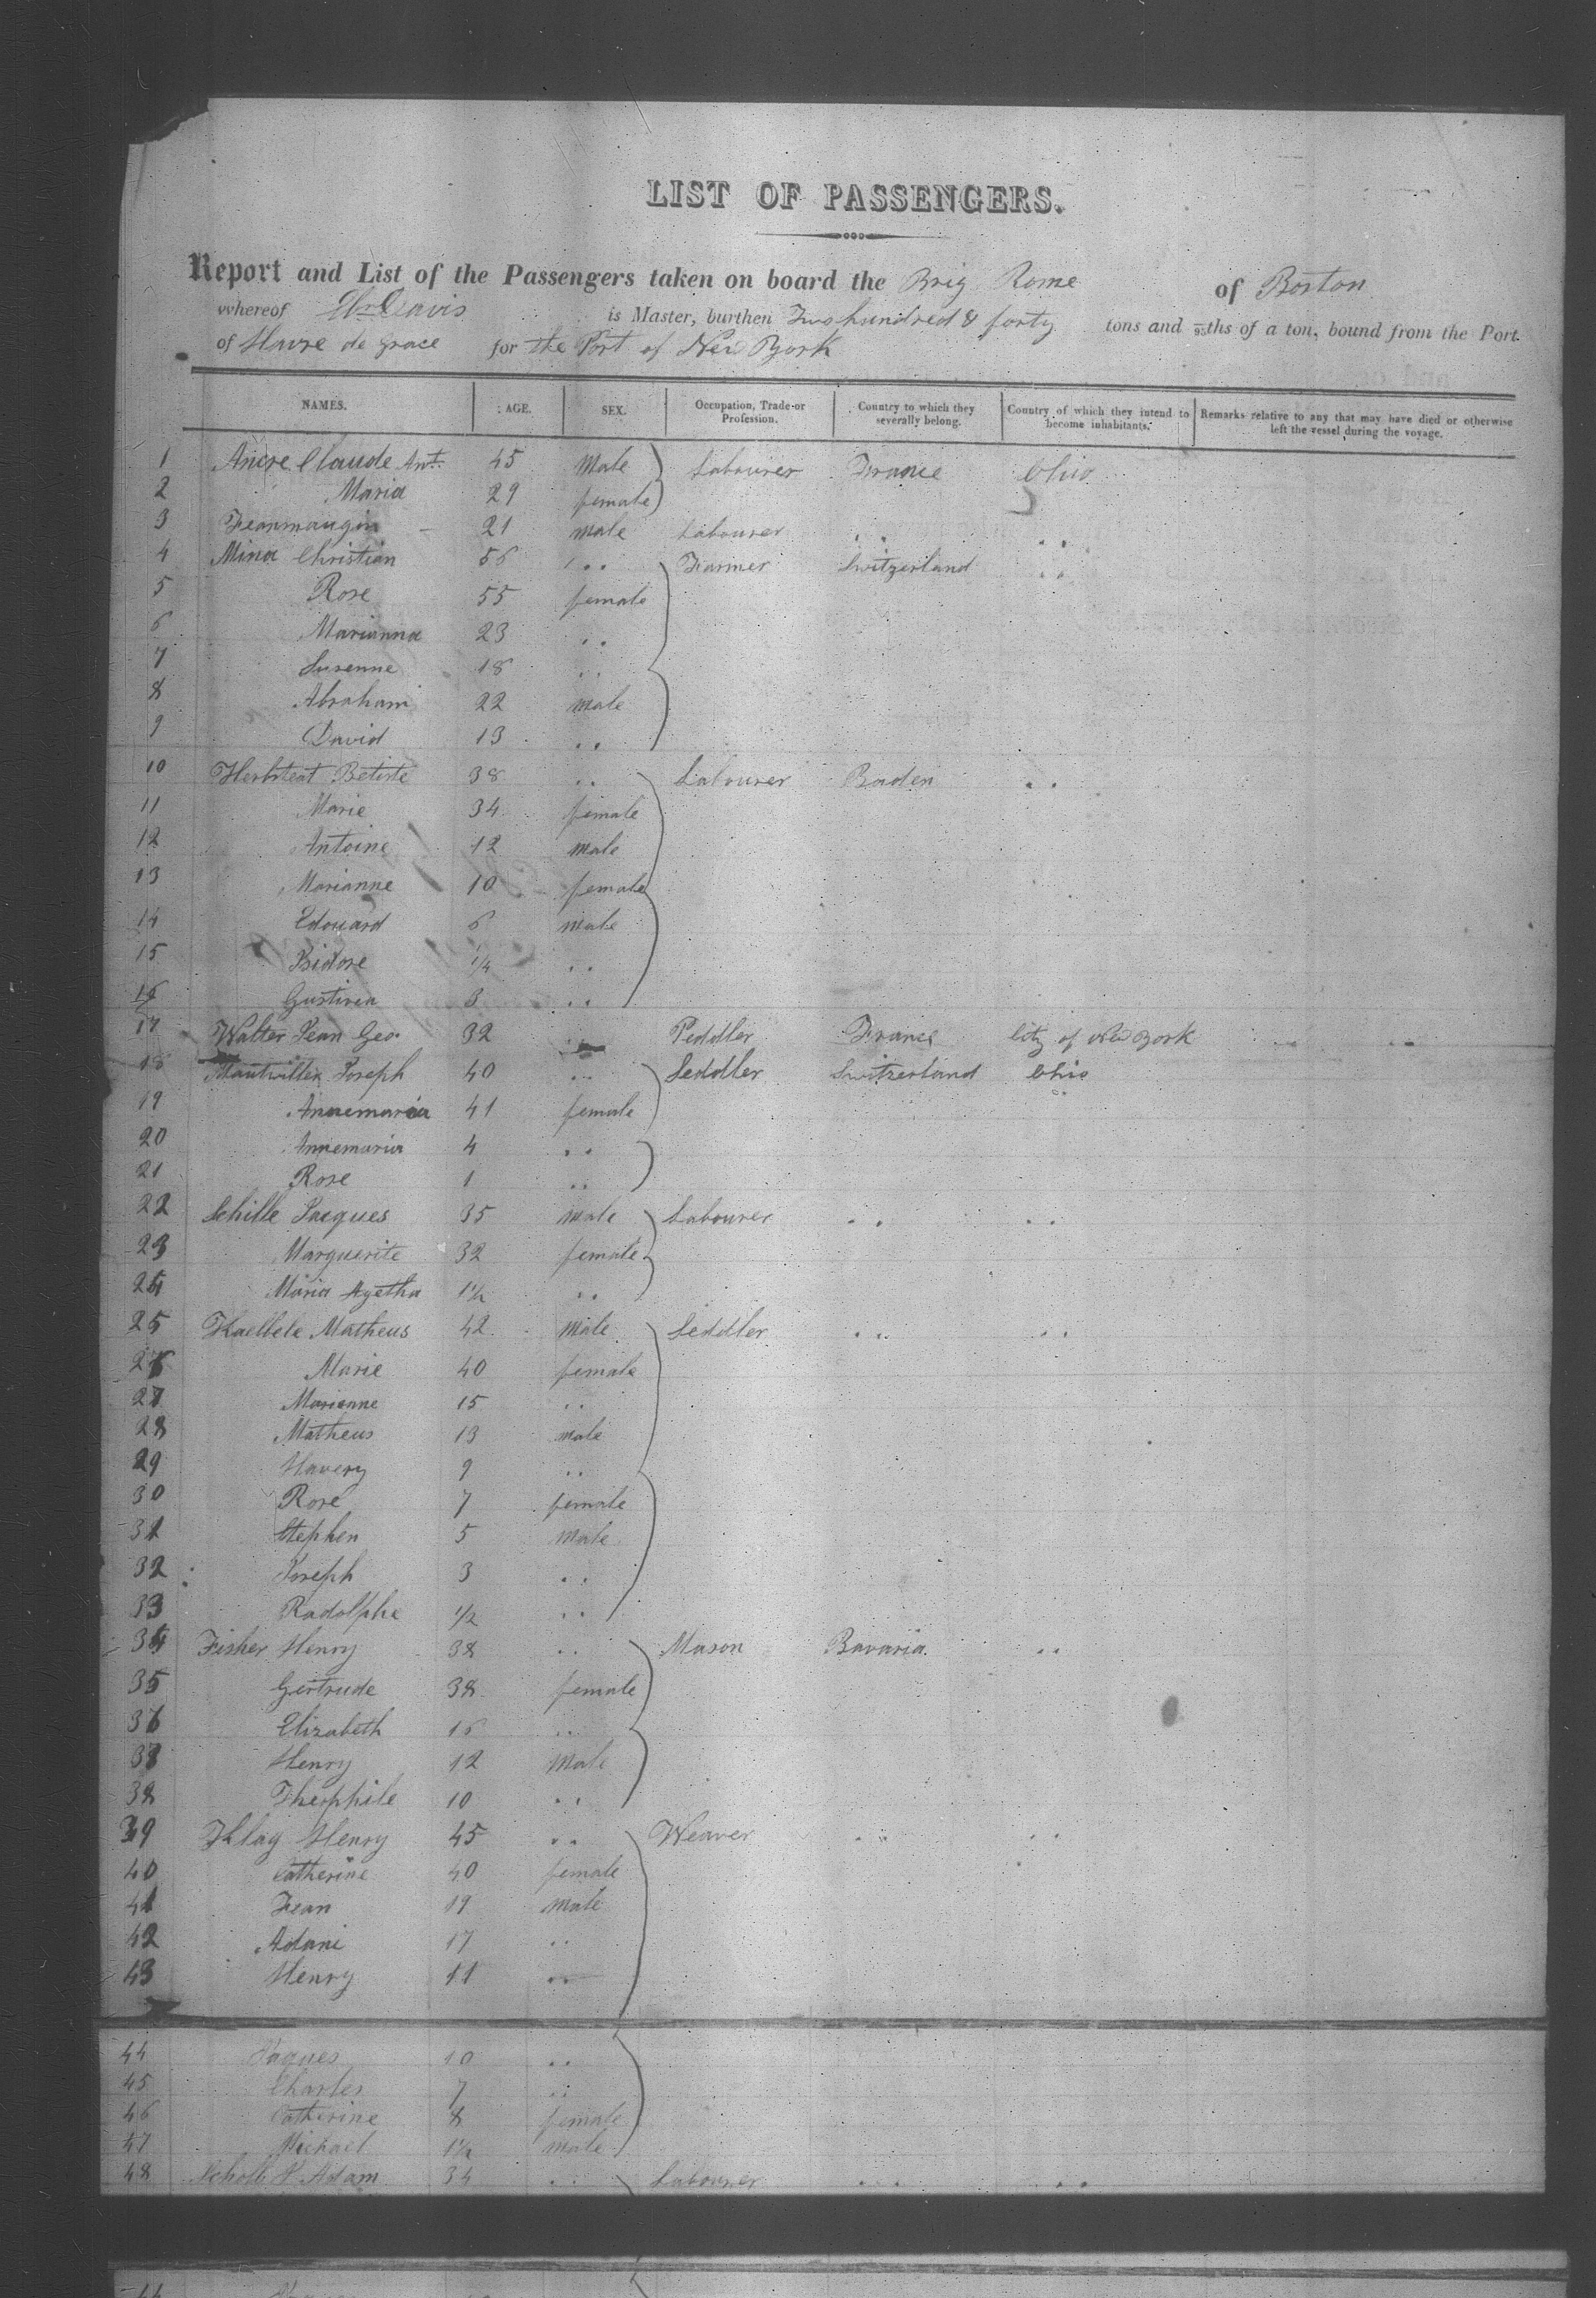 LIST OF PASSENGERS.
Report and List of the Passengers taken on board the Brig Rome of Boston
whereof Wm Davis is Master, burthen Two hundred & forty tons and 95ths of a ton, bound from the Port
of Havre de Grace for the Port of New York
NAMES. AGE. SEX. Occupation, Trade or Profession. Country to which they severally belong. Country of which they intend to become inhabitants. Remarks relative to any that may have died or otherwise left the vessel during the voyage.
1 Ancre Claude Ant. 45 Male Labourer France Ohio
2 Maria 29 female
3 Jeanmaugin 21 male Labourer .. ..
4 Mina Christian 56 .. Farmer Switzerland ..
5 Rose 55 female
6 Marianna 23 ..
7 Susenne 18 ..
8 Abraham 22 male
9 David 13 ..
10 Betiste 38 .. Labourer Baden ..
11 Marie 34 female
12 Antoine 12 male
13 Marianne 10 female
14 Edouard 6 male
15 Isidore 1/4 ..
16 3 ..
17 Walter Jean Geo. 32 .. Peddler France City of New York
18 Joseph 40 .. Peddler Switzerland Ohio
19 Annemaria 41 female
20 Annemaria 4 ..
21 Rose 1 ..
22 Schille Jacques 35 male Labourer .. ..
23 Marguerite 32 female
24 Maria Agetha 1 1/2 ..
25 Kaelbele Matheus 42 male Peddler .. ..
26 Marie 40 female
27 Marianne 15 ..
28 Matheus 13 male
29 Havery 9 ..
30 Rose 7 female
31 Stephen 5 male
32 Joseph 3 ..
33 Radolphe 1/2 ..
34 Fisher Henry 38 .. Mason Bavaria. ..
35 Gertrude 38 female
36 Elizabeth 16 ..
37 Henry 12 male
38 Theophile 10 ..
39 Klag Henry 45 .. Weaver .. ..
40 Catherine 40 female
41 Jean 19 male
42 Adam 17 ..
43 Henry 11 ..
44 Jaques 10 ..
45 Charles 7 ..
46 Catherine 8 female
47 Michael 1 1/2 male
48 Adam 34 .. Labourer .. ..